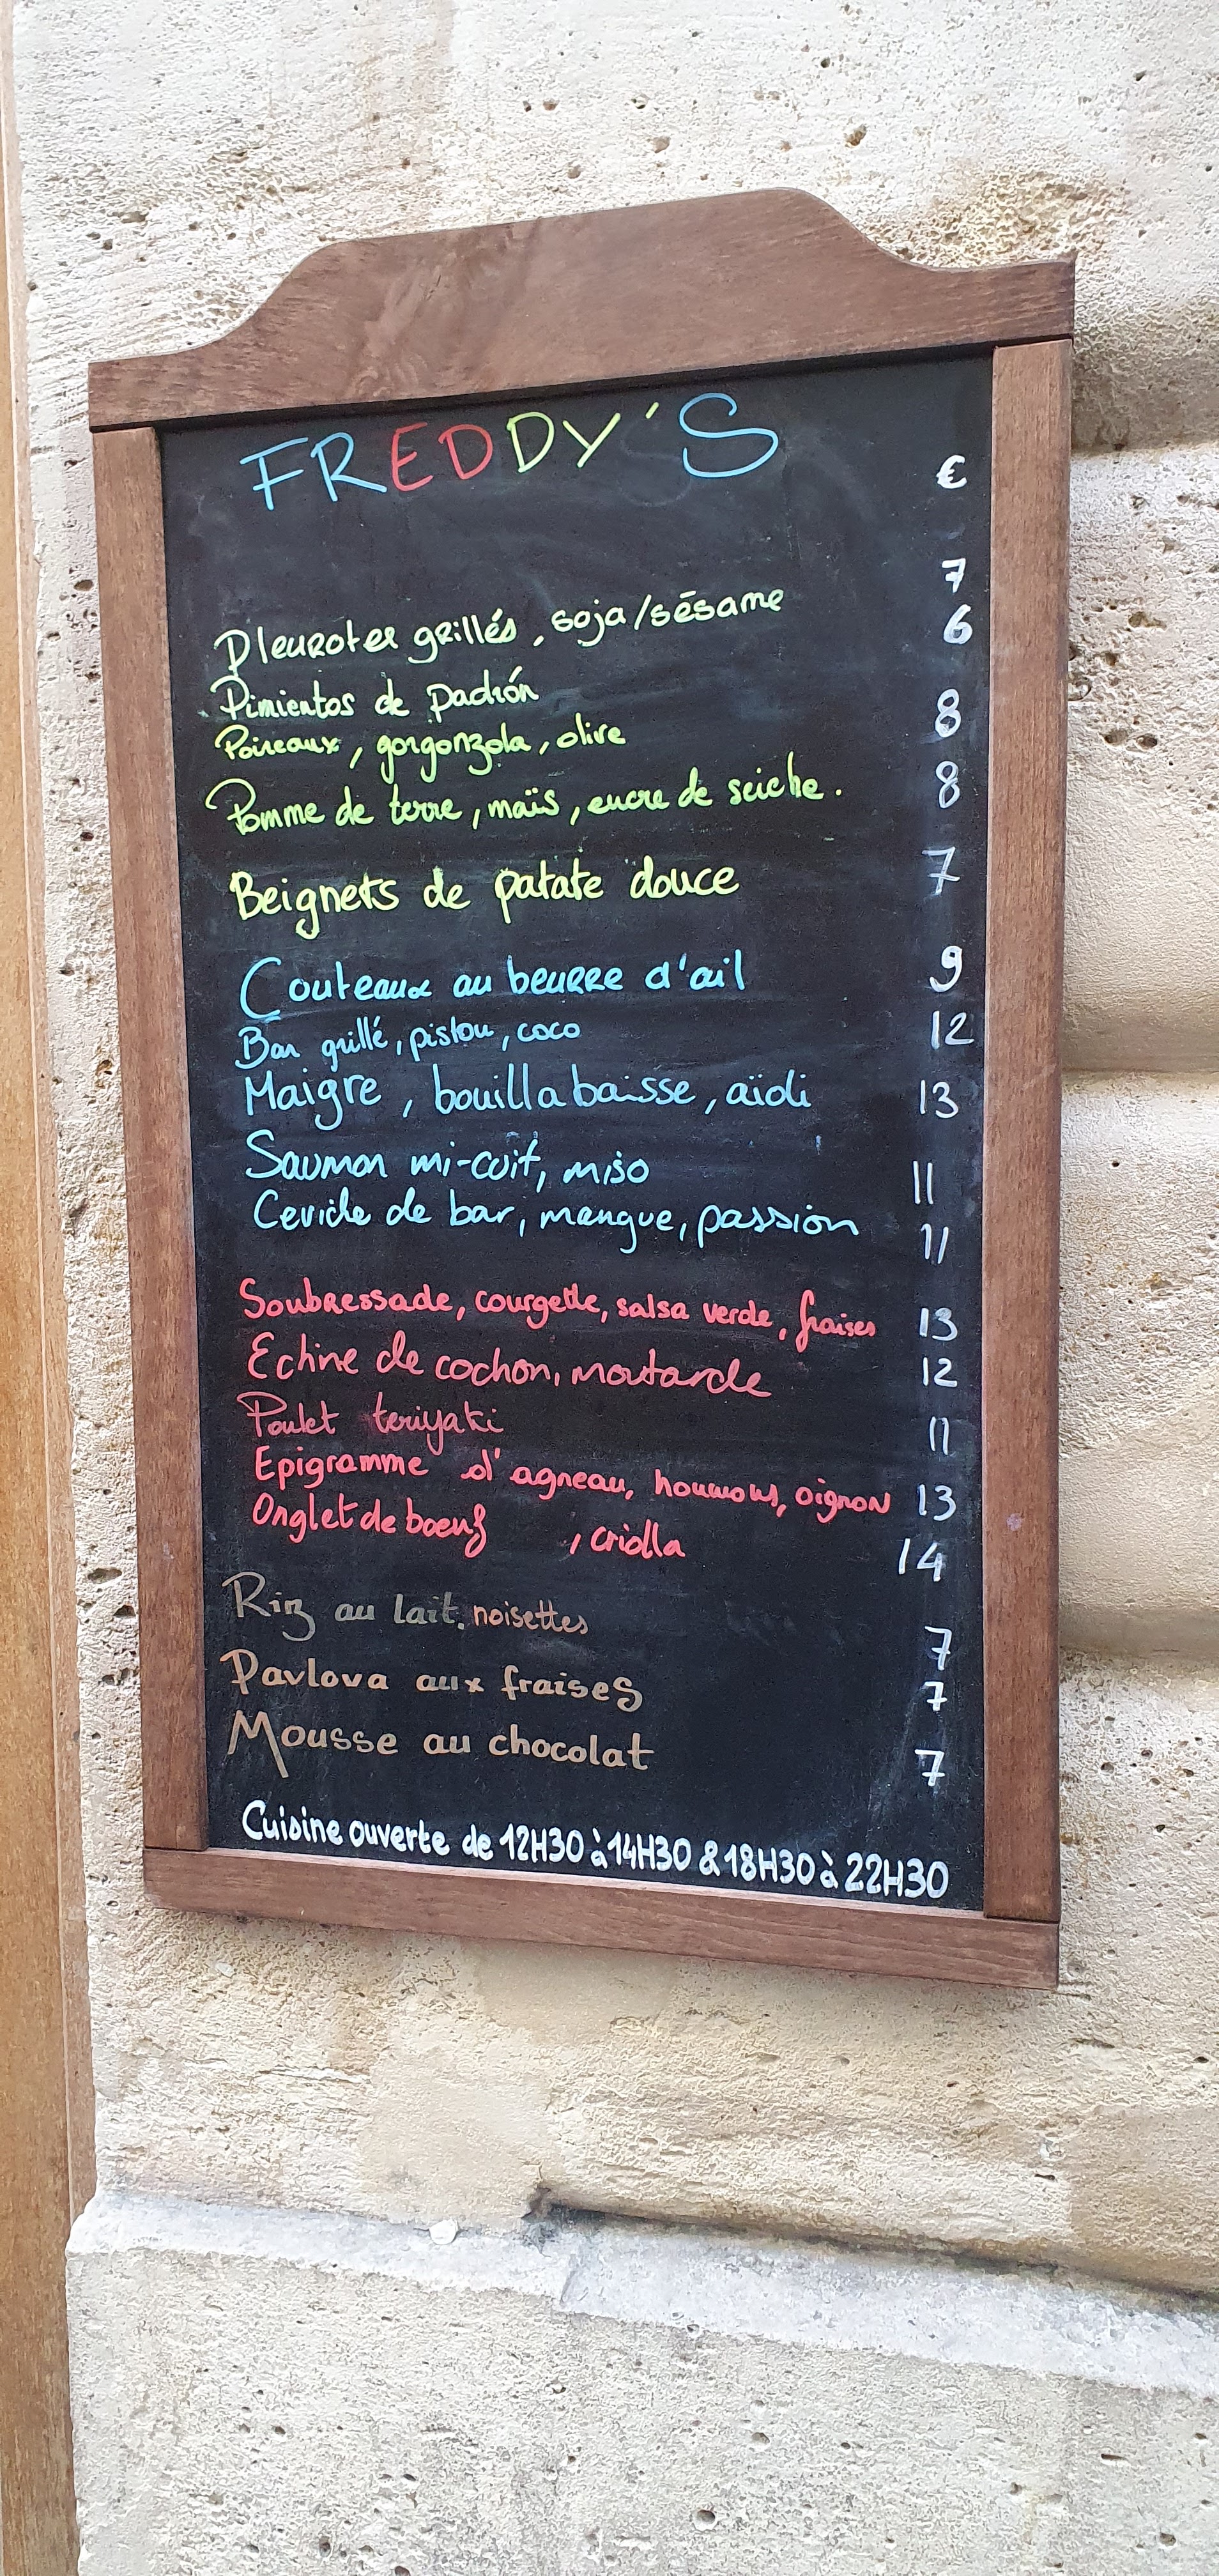 FREDDY'S
€
Pleurotes grillés, soja/sésame 7
Pimientos de padrón 6
Poireaux, gorgonzola, olive 8
Pomme de terre, maïs, encre de seiche. 8
Beignets de patate douce 7
Couteaux au beurre d'ail 9
Bar grillé, pistou, coco 12
Maigre, bouillabaisse, aïoli 13
Saumon mi-cuit, miso 11
Ceviche de bar, mangue, passion 11
Soubressade, courgette, salsa verde, fraises 13
Echine de cochon, moutarde 12
Poulet teriyaki 11
Epigramme d'agneau, houmous, oignon 13
Onglet de boeuf , criolla 14
Riz au lait, noisettes 7
Pavlova aux fraises 7
Mousse au chocolat 7
Cuisine ouverte de 12H30 à 14H30 & 18H30 à 22H30